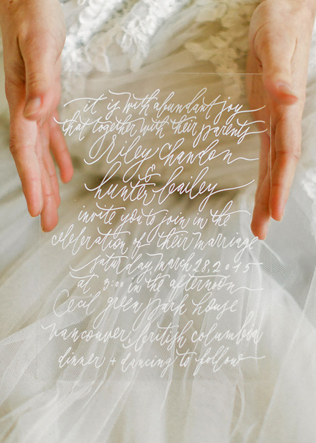 it is with abundant joy
that together with their parents
Riley Chandon
&
hunter bailey
invite you to join in the
celebration of their marriage
saturday, march 28, 2015
at 3:00 in the afternoon
Cecil green park house
vancouver, british columbia
dinner + dancing to follow